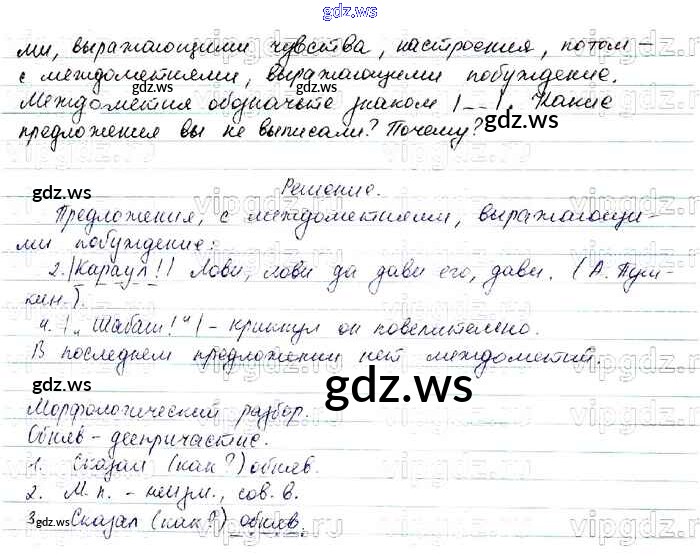 gdz.ws
ми, выражающими чувства, настроения, потом –
с междометиями, выражающими побуждение.
Междометия обозначьте знаком |_ _|. Какие
предложения вы не выписали? Почему?
gdz.ws
gdz.ws
Решение.
Предложения, с междометиями, выражающи-
ми побуждение:
2. |Караул!| Лови, лови да дави его, дави. (А. Пуш-
кин.).
4. |„Шабаш!“| – крикнул он повелительно.
В последнем предложении нет междометий.
gdz.ws
Морфологический разбор.
Обняв – деепричастие.
1. Сказал (как?) обняв.
2. М.п. – неизм., сов. в.
3. Сказал (как?) обняв.
gdz.ws
gdz.ws